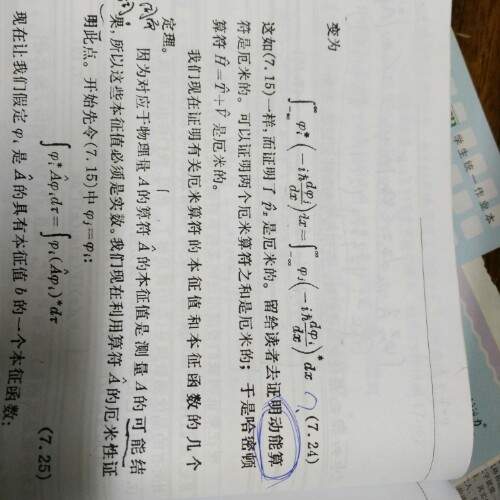 变为
∫_{-∞}^{∞} φᵢ* (-iħ dφⱼ/dx) dx = ∫_{-∞}^{∞} φⱼ (-iħ dφᵢ/dx)* dx (7.24)
这如(7.15)一样,而证明了 p̂ₓ 是厄米的。留给读者去证明动能算
符是厄米的。可以证明两个厄米算符之和是厄米的;于是哈密顿
算符 Ĥ=T̂+V̂ 是厄米的。
我们现在证明有关厄米算符的本征值和本征函数的几个
定理。
因为对应于物理量 A 的算符 Â 的本征值是测量 A 的可能结
果,所以这些本征值必须是实数。我们现在利用算符 Â 的厄米性证
明此点。开始先令(7.15)中 φⱼ=φᵢ:
∫φᵢ*Âφᵢdτ=∫φᵢ(Âφᵢ)*dτ (7.25)
现在让我们假定 φᵢ 是 Â 的具有本征值 b 的一个本征函数:
学生统一作业本